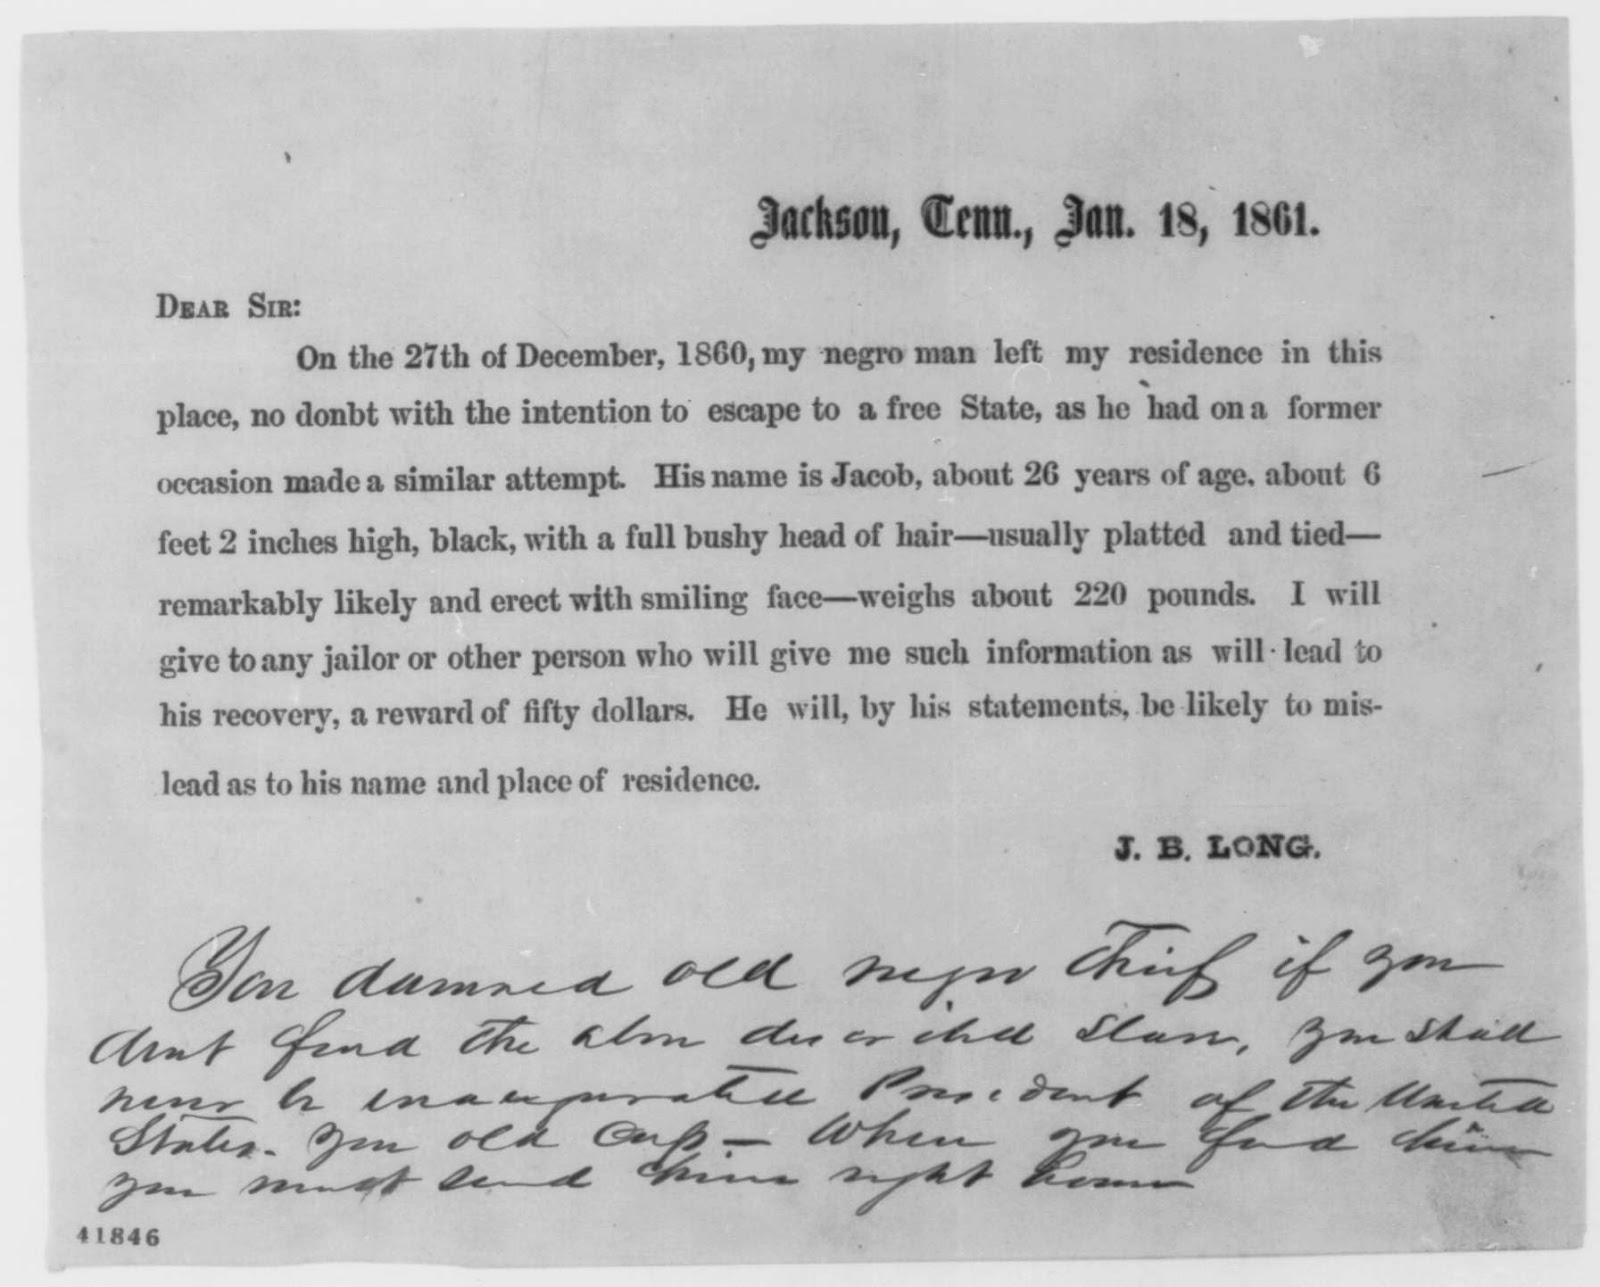 Jackson, Tenn., Jan. 18, 1861.
DEAR SIR:
On the 27th of December, 1860, my negro man left my residence in this
place, no donbt with the intention to escape to a free State, as he had on a former
occasion made a similar attempt. His name is Jacob, about 26 years of age, about 6
feet 2 inches high, black, with a full bushy head of hair—usually platted and tied—
remarkably likely and erect with smiling face—weighs about 220 pounds. I will
give to any jailor or other person who will give me such information as will lead to
his recovery, a reward of fifty dollars. He will, by his statements, be likely to mis-
lead as to his name and place of residence.
J. B. LONG.
You damned old negro thief if you
dont find the above described slave, you shall
never be inaugurated President of the United
States. you old – When you find him
you must send him right home
41846